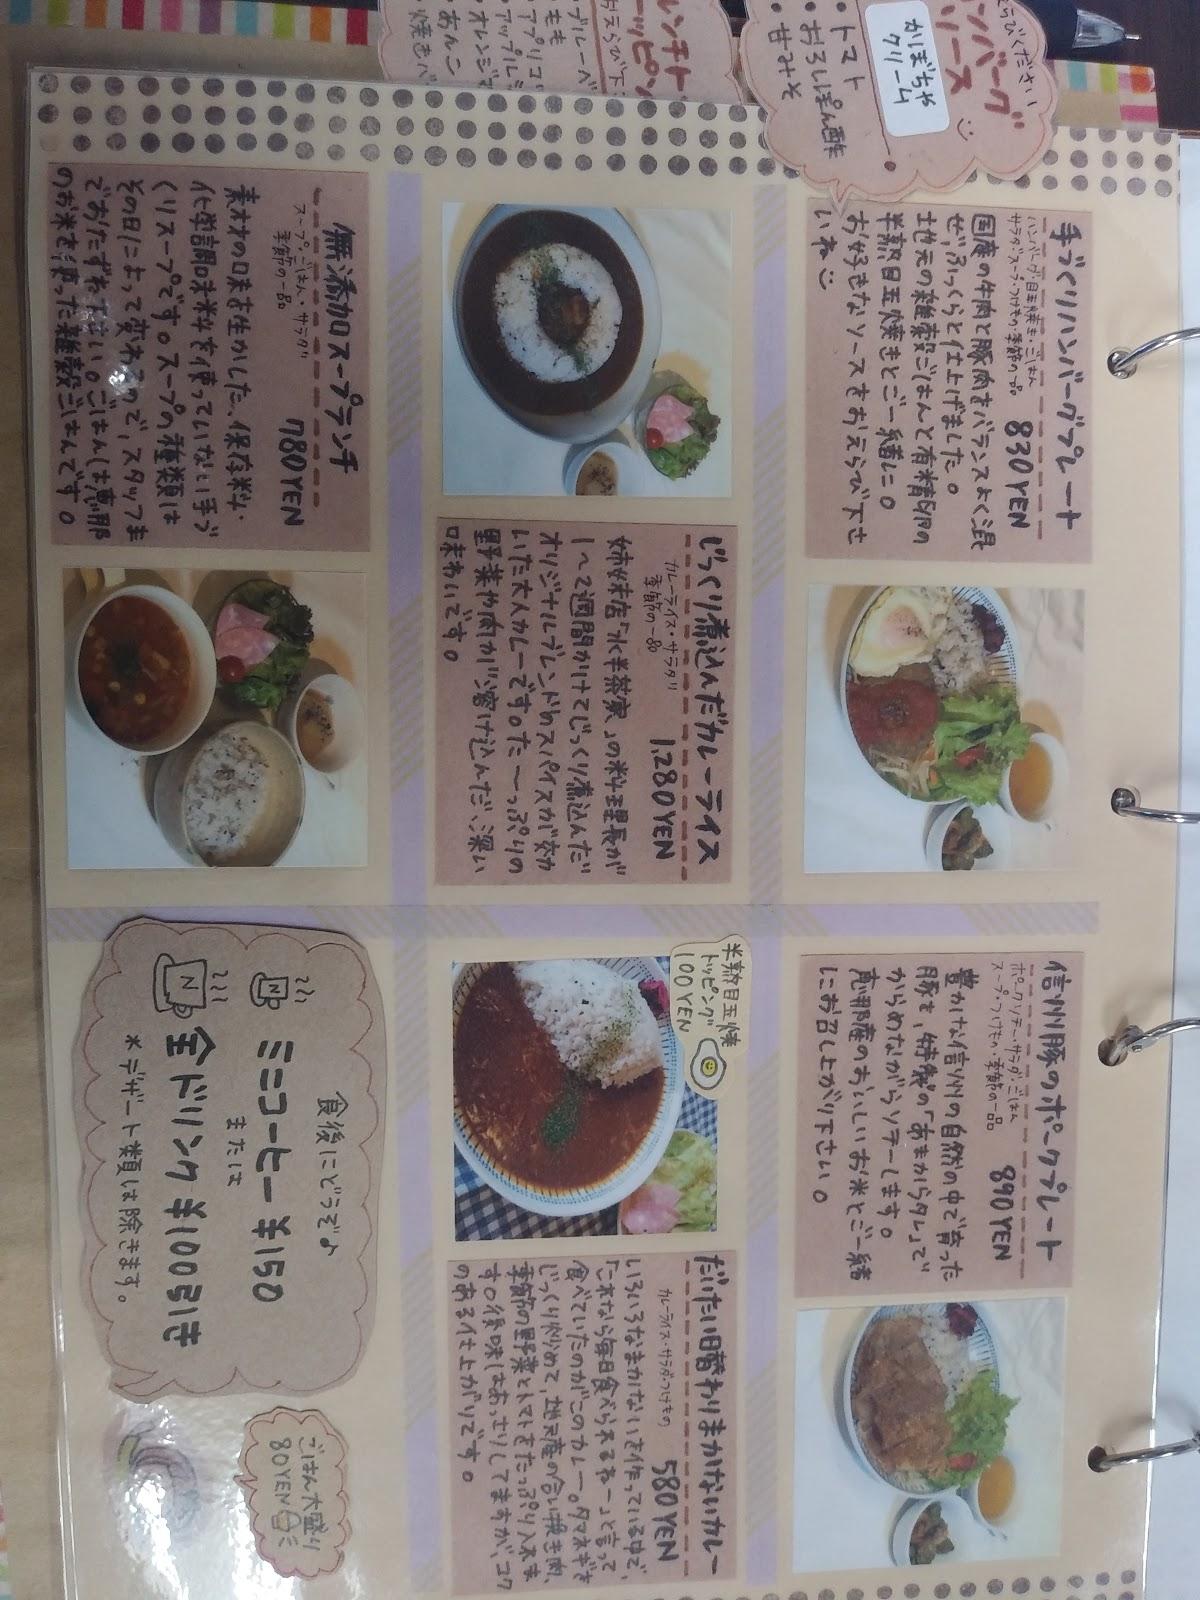 らびください
ンバーグ
ソース
かぼちゃ
クリーム
・トマト
・おろしぽん酢
・甘みそ
レンチト
ッピン
おえらび下
・ブルーベ
・もも
・アプリコ
・アップル
・オレンジマ
・あんこ
・焼きバ
手づくりハンバーグプレート
ハンバーグ・目玉焼き・ごはん
サラダ・スープ・つけもの・季節の一品
830YEN
国産の牛肉と豚肉をバランスよく混
ぜ、ふっくらと仕上げました。
地元の雑穀ごはんと有精卵の
半熟目玉焼きとご一緒に。
お好きなソースをおえらび下さ
いね
信州豚のポークプレート
ポークソテー・サラダ・ごはん
スープ・つけもの・季節の一品
890YEN
豊かな信州の自然の中で育った
豚を、特製の「あまからタレ」で
からめながらソテーします。
恵那産のおいしいお米とご一緒
にお召し上がり下さい。
じっくり煮込んだカレーライス
カレーライス・サラダ
季節の一品
1,280YEN
姉妹店「水半茶寮」の料理長が
1〜2週間かけてじっくり煮込んだ
オリジナルブレンドのスパイスが効
いた大人カレーです。た〜っぷりの
野菜や肉が溶け込んだ、深い
味わいです。
半熟目玉焼
トッピング
100YEN
だいたい日替わりまかないカレー
カレーライス・サラダ・つけもの
580YEN
いろいろなまかないを作っている中で、
「これなら毎日食べられるねー」と言って
食べていたのがこのカレー。タマネギを
じっくり炒めて、地元産の合い挽き肉、
季節の野菜とトマトをたっぷり入れま
す。後味はあっさりしてますが、コク
のある仕上がりです。
無添加スープランチ
スープ・ごはん・サラダ
季節の一品
780YEN
素材の味を生かした、保存料・
化学調味料を使っていない手づ
くりスープです。スープの種類は
その日によって変わるので、スタッフま
でおたずね下さい。ごはんは恵那
のお米を使った雑穀ごはんです。
食後にどうぞ♪
ミニコーヒー ¥150
または
全ドリンク ¥100引き
N
※デザート類は除きます。
ごはん大盛り
80YEN